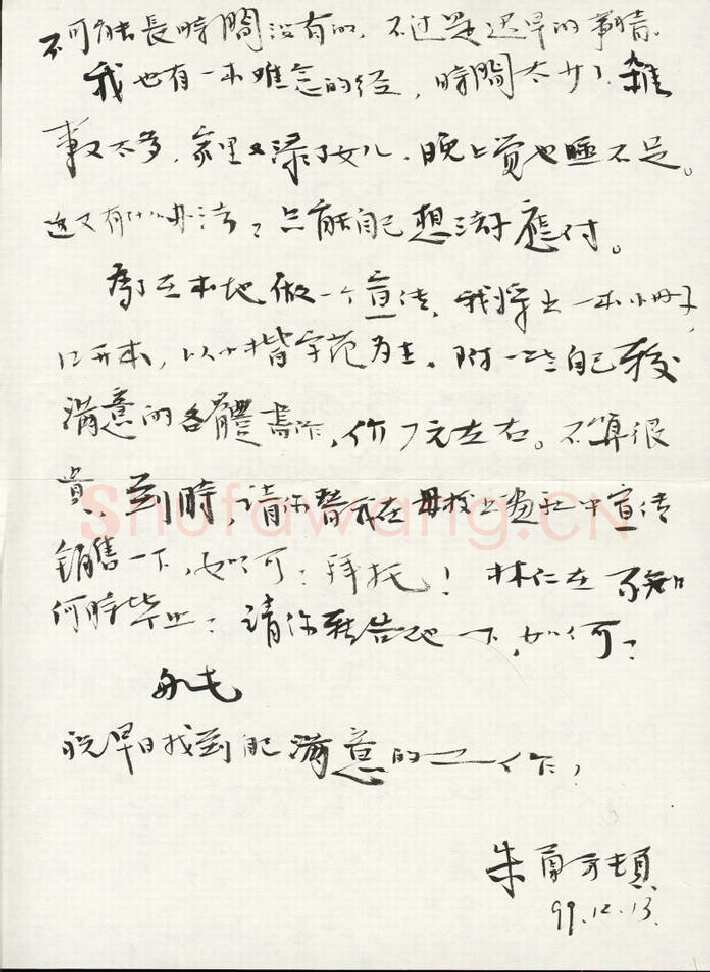 不可能長時間没有的，不过是迟早的事情。
我也有一本难念的经，時間太少，雜
事又太多，家里又添了女儿，晚上觉也睡不足。
这又有什么办法？只能自己想法子應付。
为了在本地做一个宣传，我将出一本小册子，
16开本，以小楷字范为主，附一些自己较
满意的各體書作，价7元左右。不算很
貴，到時，请你替我在母校上书社中宣传
銷售一下，如何？拜托！林仁在不知
何時毕业？请你转告他一下，如何？
祝早日找到自己满意的工作！
朱勇方頓
99.12.13.
Shufawang.CN